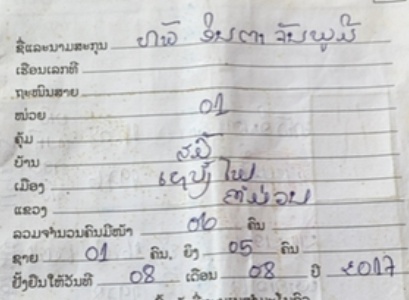 ຊື່ແລະນາມສະກຸນ ທາວ໌ ຈັນພູມີ
ເຮືອນເລກທີ
ຖະໜົນສາຍ
ໜ່ວຍ 01
ຄຸ້ມ
ບ້ານ
ເມືອງ ໄຟ
ແຂວງ ຄຳມ່ວນ
ລວມຈຳນວນຄົນມີໜ້າ 06 ຄົນ
ຊາຍ 01 ຄົນ, ຍິງ 05 ຄົນ
ຢັ້ງຢືນໃຫ້ວັນທີ 08 ເດືອນ 08 ປີ 2017